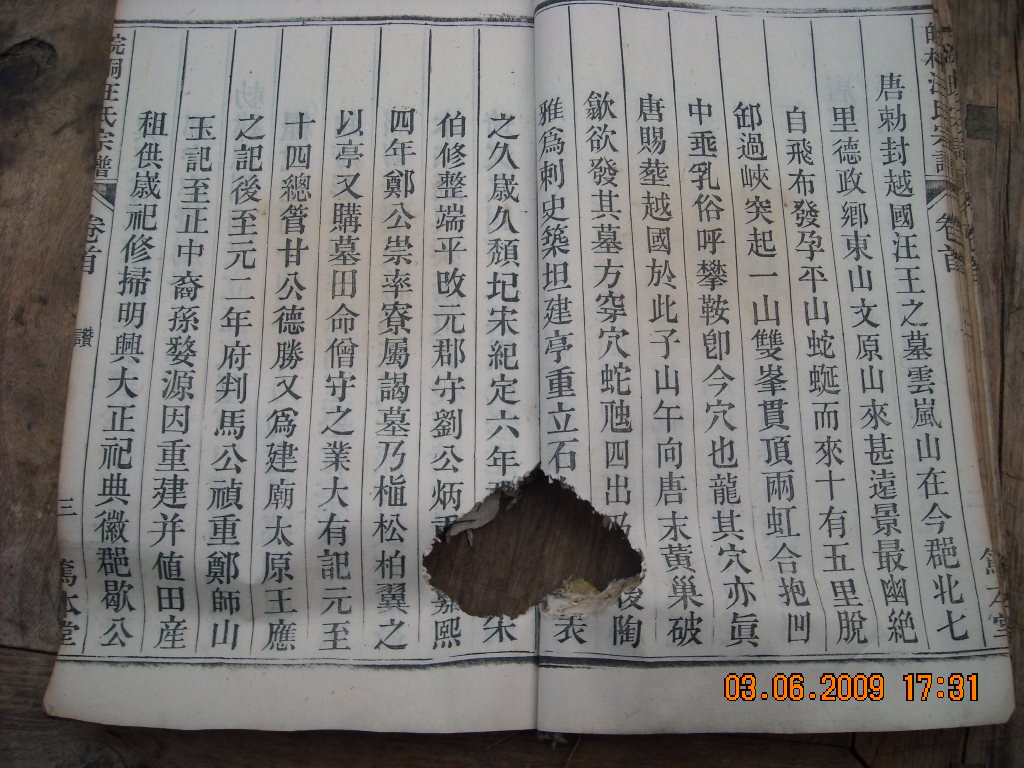 唐勅封越國汪王之墓雲嵐山在今郡北七
里德政鄉東山文原山來甚遠景最幽絶
自飛布發孕平山蛇蜒而來十有五里脫
卸過峽突起一山雙峯貫頂兩虹合抱凹
中垂乳俗呼攀鞍卽今穴也龍其穴亦眞
唐賜塟越國於此子山午向唐末黃巢破
歙欲發其墓方穿穴蛇虺四出 後陶
雅爲刺史築坦建亭重立石 表
之久歲久頹圮宋紀定六年 朱
伯修整端平改元郡守劉公炳 嘉熙
四年鄭公崇率寮屬謁墓乃植松柏翼之
以亭又購墓田命僧守之業大有記元至
十四總管甘公德勝又爲建廟太原王應
之記後至元二年府判馬公禎重鄭師山
玉記至正中裔孫婺源因重建并値田産
租供歲祀修掃明興大正祀典徽郡歇公
汪氏宗譜 卷首 讚 三 篤本堂
卷首
03.06.2009 17:31